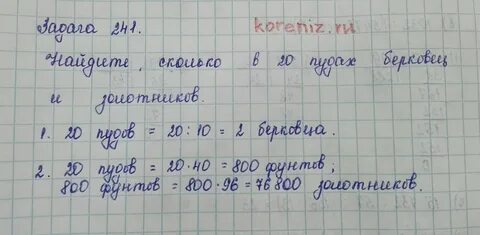 Задача 241.
koreniz.ru
Найдите, сколько в 20 пудах берковец
и золотников.
1. 20 пудов = 20:10 = 2 берковца.
2. 20 пудов = 20·40 = 800 фунтов;
800 фунтов = 800·96 = 76800 золотников.